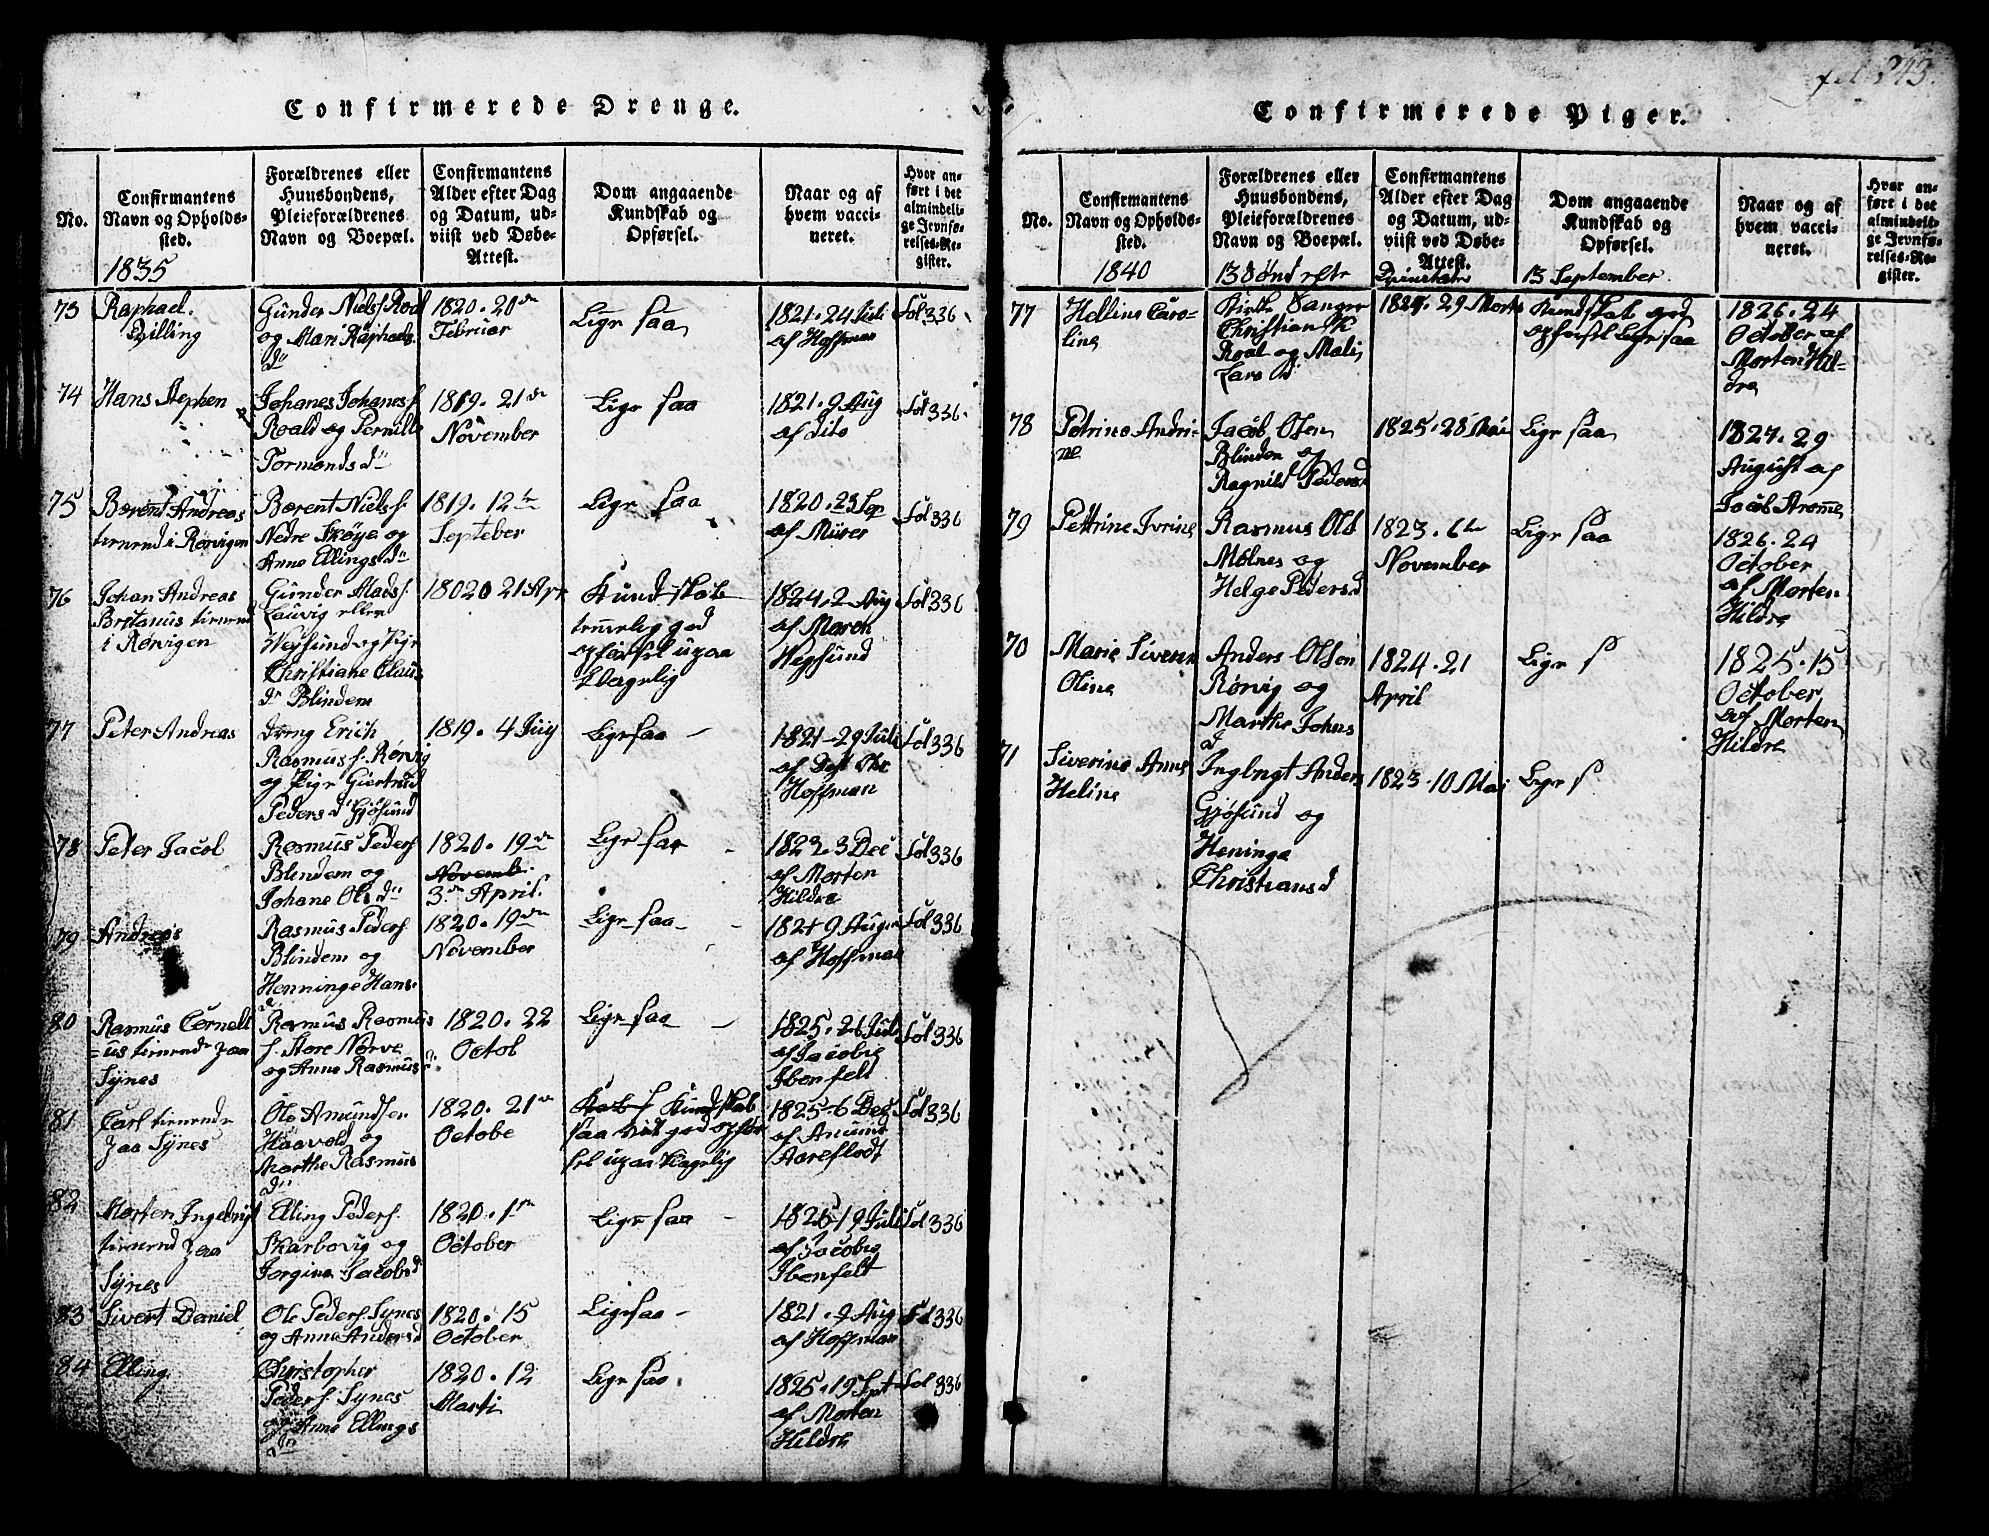 Confirmerede Drenge.
No.
Confirmantens
Navn og Opholds-
sted.
1835
Forældrenes eller
Huusbondens,
Pleieforældrenes
Navn og Boepæl.
Confirmantens
Alder efter Dag
og Datum, ud-
viist ved Døbe-
Attest.
Dom angaaende
Kundskab og
Opførsel.
Naar og af
hvem vacci-
neret.
Hvor an-
ført i det
almindeli-
ge Jevnfø-
relses-Re-
gister.
73
Raphael
Gunder Nielsf Roal
og Mari Raphaels
dr
1820. 20de
Februar
Lige saa
1821. 24 Juli
af Hoffman
Fol 336
74
Hans Stephen
Johanes Johanesf
Roald og Pernille
Tormonds dr
1819. 21de
November
Lige saa
1821. 9 Aug
af dito
Fol 336
75
Bærent Andreas
tienend i Rørvigen
Bærent Nielsf.
Nedre Skøye og
Anne Ellings dr
1819. 12te
Septeber
Lige saa
1820. 23 Sep
af Mürer
Fol 336
76
Johan Andreas
Bretanus tienend
i Rørvigen
Gunder Madsf.
Lauvig eller
Wegsund og Pige
Christiane Claus
dr Blindem
18020 21 Apr
Kundskab
temelig god
opførsel upaa
klagelig
1824. 2 Aug
af
Wegsund
Fol 336
77
Peter Andreas
dreng Erich
Rasmusf. Rørvig
og Pige Giertrud
Peders d Gjøsund
1819. 4 Juy
Lige saa
1821 29 Juli
af Dost Chr
Hoffman
Fol 336
78
Peter Jacob
Rasmus Pedersf
Blindem og
Johane Ols dr
1820. 19de
Novemb.
3de April.
Lige saa
1823. 3 Dec
af Morten
Hildre
Fol 336
79
Andreas
Rasmus Pedersf
Blindem og
Henninge Hans
d.
1820. 19de
November
Lige saa
1821 9 Aug
af Hoffman
Fol 336
80
Rasmus Corneli
=us tienende paa
Synes
Rasmus Rasmus
f. Store Nørve
og Anne Rasmus
dr
1820. 22
Octob
Lige saa
1825. 26 Juli
af Jacobie
Ibenfelt
Fol 336
81
Carl tienende
paa Synes
Ole Amundsen
Haavold og
Marthe Rasmus
dr
1820. 21de
Octobe
Kundskab
saa vidt god opfør
sel upaa klagelig
1825. 6 Dec
af Amund
Aareflodt
Fol 336
82
Morten Ingebrigt
tienend paa
Synes
Elling Pedersf.
Skarbøvig og
Jorgine Jacobs d
1820. 1te
October
Lige saa
1825 19 Juli
af Jacobie
Ibenfelt
Fol 336
83
Sivert Daniel
Ole Pedersf Synes
og Anne Anders d
1820. 15
October
Lige saa
1821. 9 Aug
af Hoffman
Fol 336
84
Elling
Christopher
Pedersf. Synes
og Anne Ellings
dr
1820. 12
Marti
Lige saa
1825. 19 Spt
af Morten
Hildre
Fol 336
fol 243.
Confirmerede Piger.
No.
Confirmantens
Navn og Opholds-
sted.
1840
Forældrenes eller
Huusbondens,
Pleieforældrenes
Navn og Boepæl.
13 Sønd efte
Confirmantens
Alder efter Dag
og Datum, ud-
viist ved Døbe-
Attest.
Dom angaaende
Kundskab og
Opførsel.
13 September
Naar og af
hvem vacci-
neret.
Hvor an-
ført i det
almindeli-
ge Jevnfø-
relses-Re-
gister.
77
Helline Caro-
line
Kirke Sanger
Christian
Roal og Mali
Lars d
Kundskab god
opførsel Lige saa
1826. 24
October af
Morten Hil-
dre
78
Petrine Andri-
ne
Jacob Olsen
Blindem og
Ragnild Peders
1825. 28 Mai
Lige saa
1827. 29
August af
Jacob Strømme
79
Pettrine Ivrine
Rasmus Ols
Molnes og
Helge Peders d
1823. 6te
November
Lige saa
1826. 24
October
af Morten
Hildre
70
Marie Sivrin
Oline
Anders Olsen
Rørvig og
Marthe Johns
d
1824. 21
April
Lige s
1825. 15
October
af Morten
Hildre
71
Siverine Anne
Heline
Ingbrigt Anders
Gjøsund og
Heninge
Christians d
1823. 10 Mai
Lige s